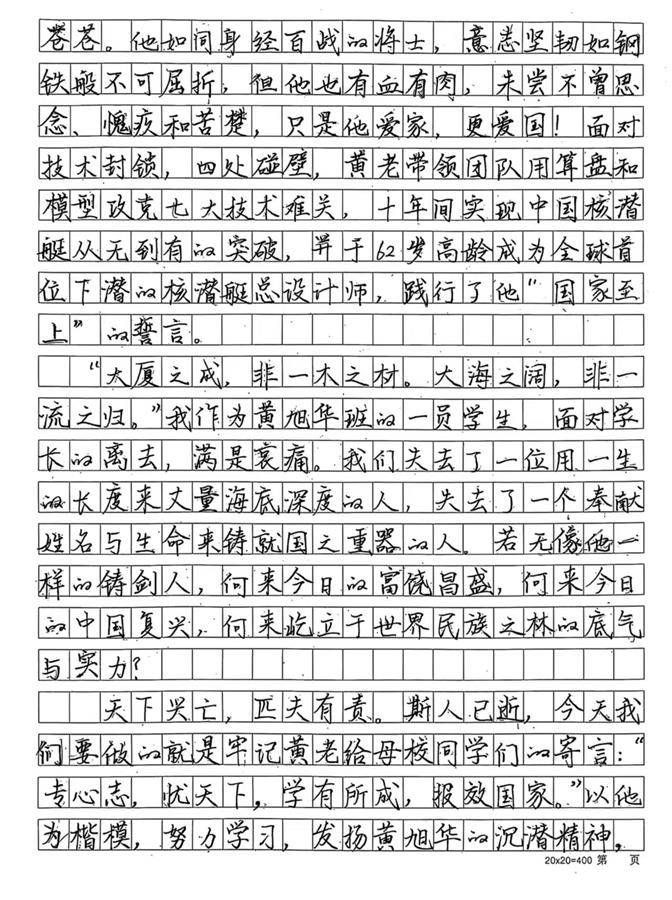 苍苍。他如同身经百战的将士，意志坚韧如钢
铁般不可屈折，但他也有血有肉，未尝不曾思
念、愧疚和苦楚，只是他爱家，更爱国！面对
技术封锁，四处碰壁，黄老带领团队用算盘和
模型攻克七大技术难关，十年间实现中国核潜
艇从无到有的突破，并于62岁高龄成为全球首
位下潜的核潜艇总设计师，践行了他“国家至
上”的誓言。
“大厦之成，非一木之材。大海之阔，非一
流之归。”我作为黄旭华班的一员学生，面对学
长的离去，满是哀痛。我们失去了一位用一生
的长度来丈量海底深度的人，失去了一个奉献
姓名与生命来铸就国之重器的人。若无像他一
样的铸剑人，何来今日的富饶昌盛，何来今日
的中国复兴，何来屹立于世界民族之林的底气
与实力？
天下兴亡，匹夫有责。斯人已逝，今天我
们要做的就是牢记黄老给母校同学们的寄言：“
专心志，忧天下，学有所成，报效国家。”以他
为楷模，努力学习，发扬黄旭华的沉潜精神，
20x20=400 第 页